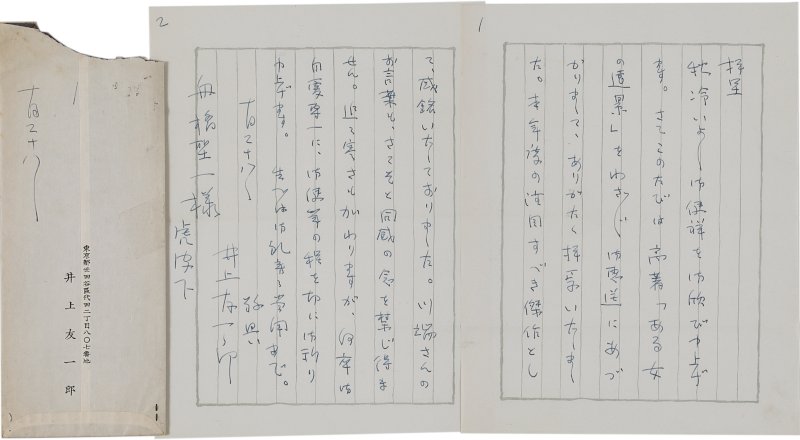 1
拝呈
秋冷いよ〳〵御健祥を御欣び申上げ
ます。さてこのたびは高著「ある女
の遠景」をわざ〳〵御恵送にあづ
かりまして、ありがたく拝受いたしまし
た。本年度の注目すべき傑作とし
2
て感銘いたしておりました。川端さんの
お言葉も、さこそと同感の念を禁じ得ま
せん。追々寒さもかわりますが、何卒御
自愛専一に、御健筆の程を切に御祈り
申上げます。まづは御礼まで
十月二十八日
井上友一郎
舟橋聖一様
虎皮下
十月二十八日
東京都世田谷区代田二丁目八〇七番地
井上友一郎